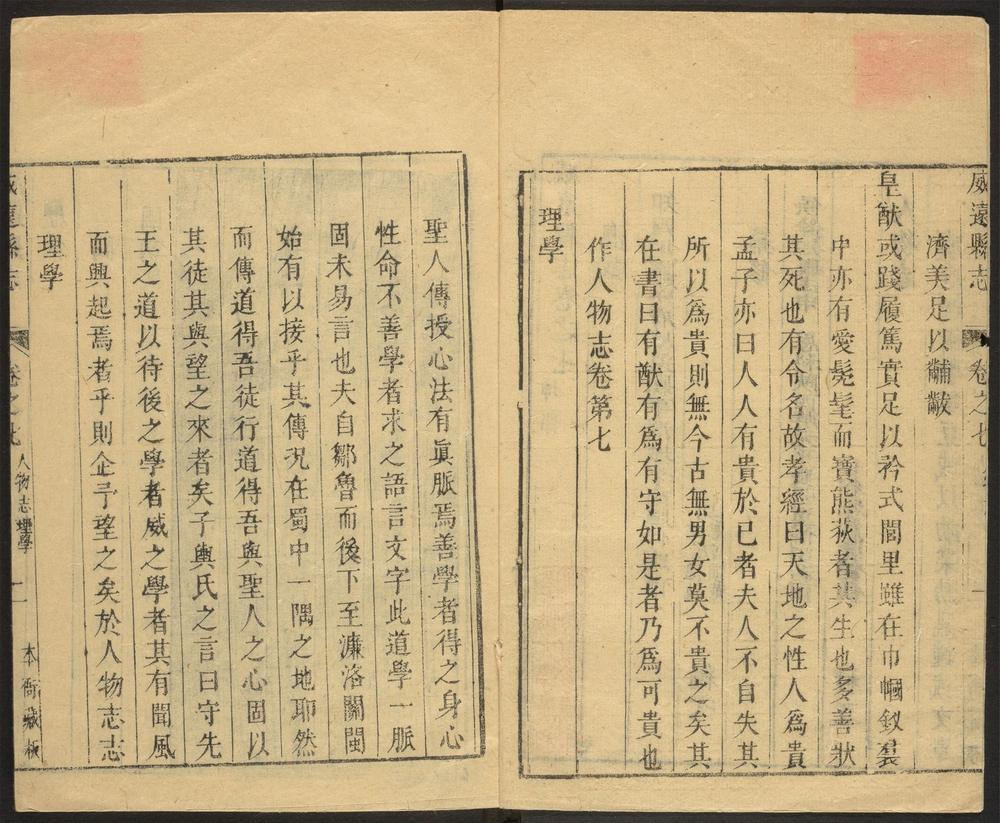 威遠縣志
卷之七
濟美足以黼黻
皇猷或踐履篤實足以矜式閭里雖在巾幗釵裙
中亦有愛髡髦而寶熊荻者其生也多善狀
其死也有令名故孝經曰天地之性人爲貴
孟子亦曰人人有貴於已者夫人不自失其
所以爲貴則無今古無男女莫不貴之矣其
在書曰有猷有爲有守如是者乃爲可貴也
作人物志卷第七
理學
聖人傳授心法有眞脈焉善學者得之身心
性命不善學者求之語言文字此道學一脈
固未易言也夫自鄒魯而後下至濂洛關閩
始有以接乎其傳況在蜀中一隅之地耶然
而傳道得吾徒行道得吾與聖人之心固以
其徒其與望之來者矣子輿氏之言曰守先
王之道以待後之學者威之學者其有聞風
而興起焉者乎則企予望之矣於人物志志
理學
威遠縣志
卷之七
人物志
理學
一
本衙藏板